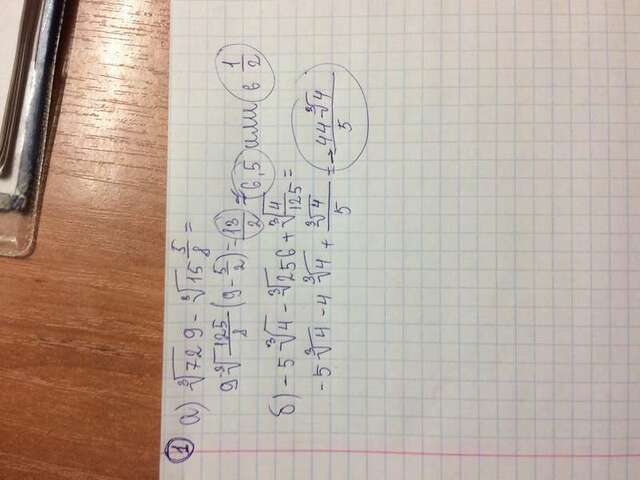 1 а) ∛729 - ∛15 5/8 =
9 - ∛125/8 (9 - 5/2) = 13/2 = 6,5 или 6 1/2
б) -5∛4 - ∛256 + ∛4/125 =
-5∛4 - 4∛4 + ∛4/5 = - 44∛4/5